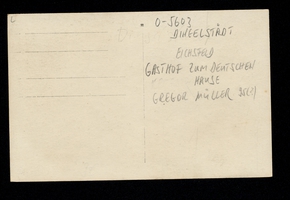 O-5603
DINGELSTÄDT
EICHSFELD
GASTHOF ZUM DEUTSCHEN
HAUSE
GREGOR MÜLLER